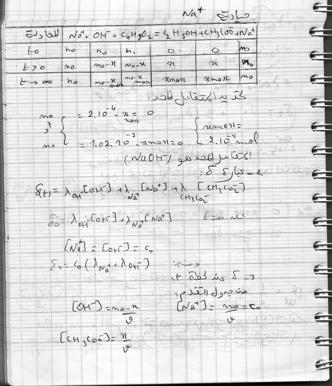 Na⁺
المعادلة Na⁺ + OH⁻ + C₄H₈O₂ = C₂H₅OH + CH₃COO⁻ + Na⁺
t=0 n₀ n₀ n₁ 0 0 n₀
t>0 n₀ n₀-x n₁-x x x n₀
t→∞ n₀ n₀-xmax n₁-xmax xmax xmax n₀
تحديد المتفاعل المحد:
n₀ = 2.10⁻⁴ - xmax = 0
xmax =
2.10⁻⁴ mol
n₁ = 1,02.10⁻² - xmax = 0
المتفاعل المحد هو (NaOH)
δ(t) = λOH⁻[OH⁻] + λNa⁺[Na⁺] + λCH₃COO⁻[CH₃COO⁻]
δ₀ = λOH⁻[OH⁻] + λNa⁺[Na⁺]
[Na⁺] = [OH⁻] = c₀
δ₀ = c₀(λNa⁺ + λOH⁻)
من جدول التقدم:
[OH⁻] = n₀-x/v [Na⁺] = n₀/v = c₀
[CH₃COO⁻] = x/v